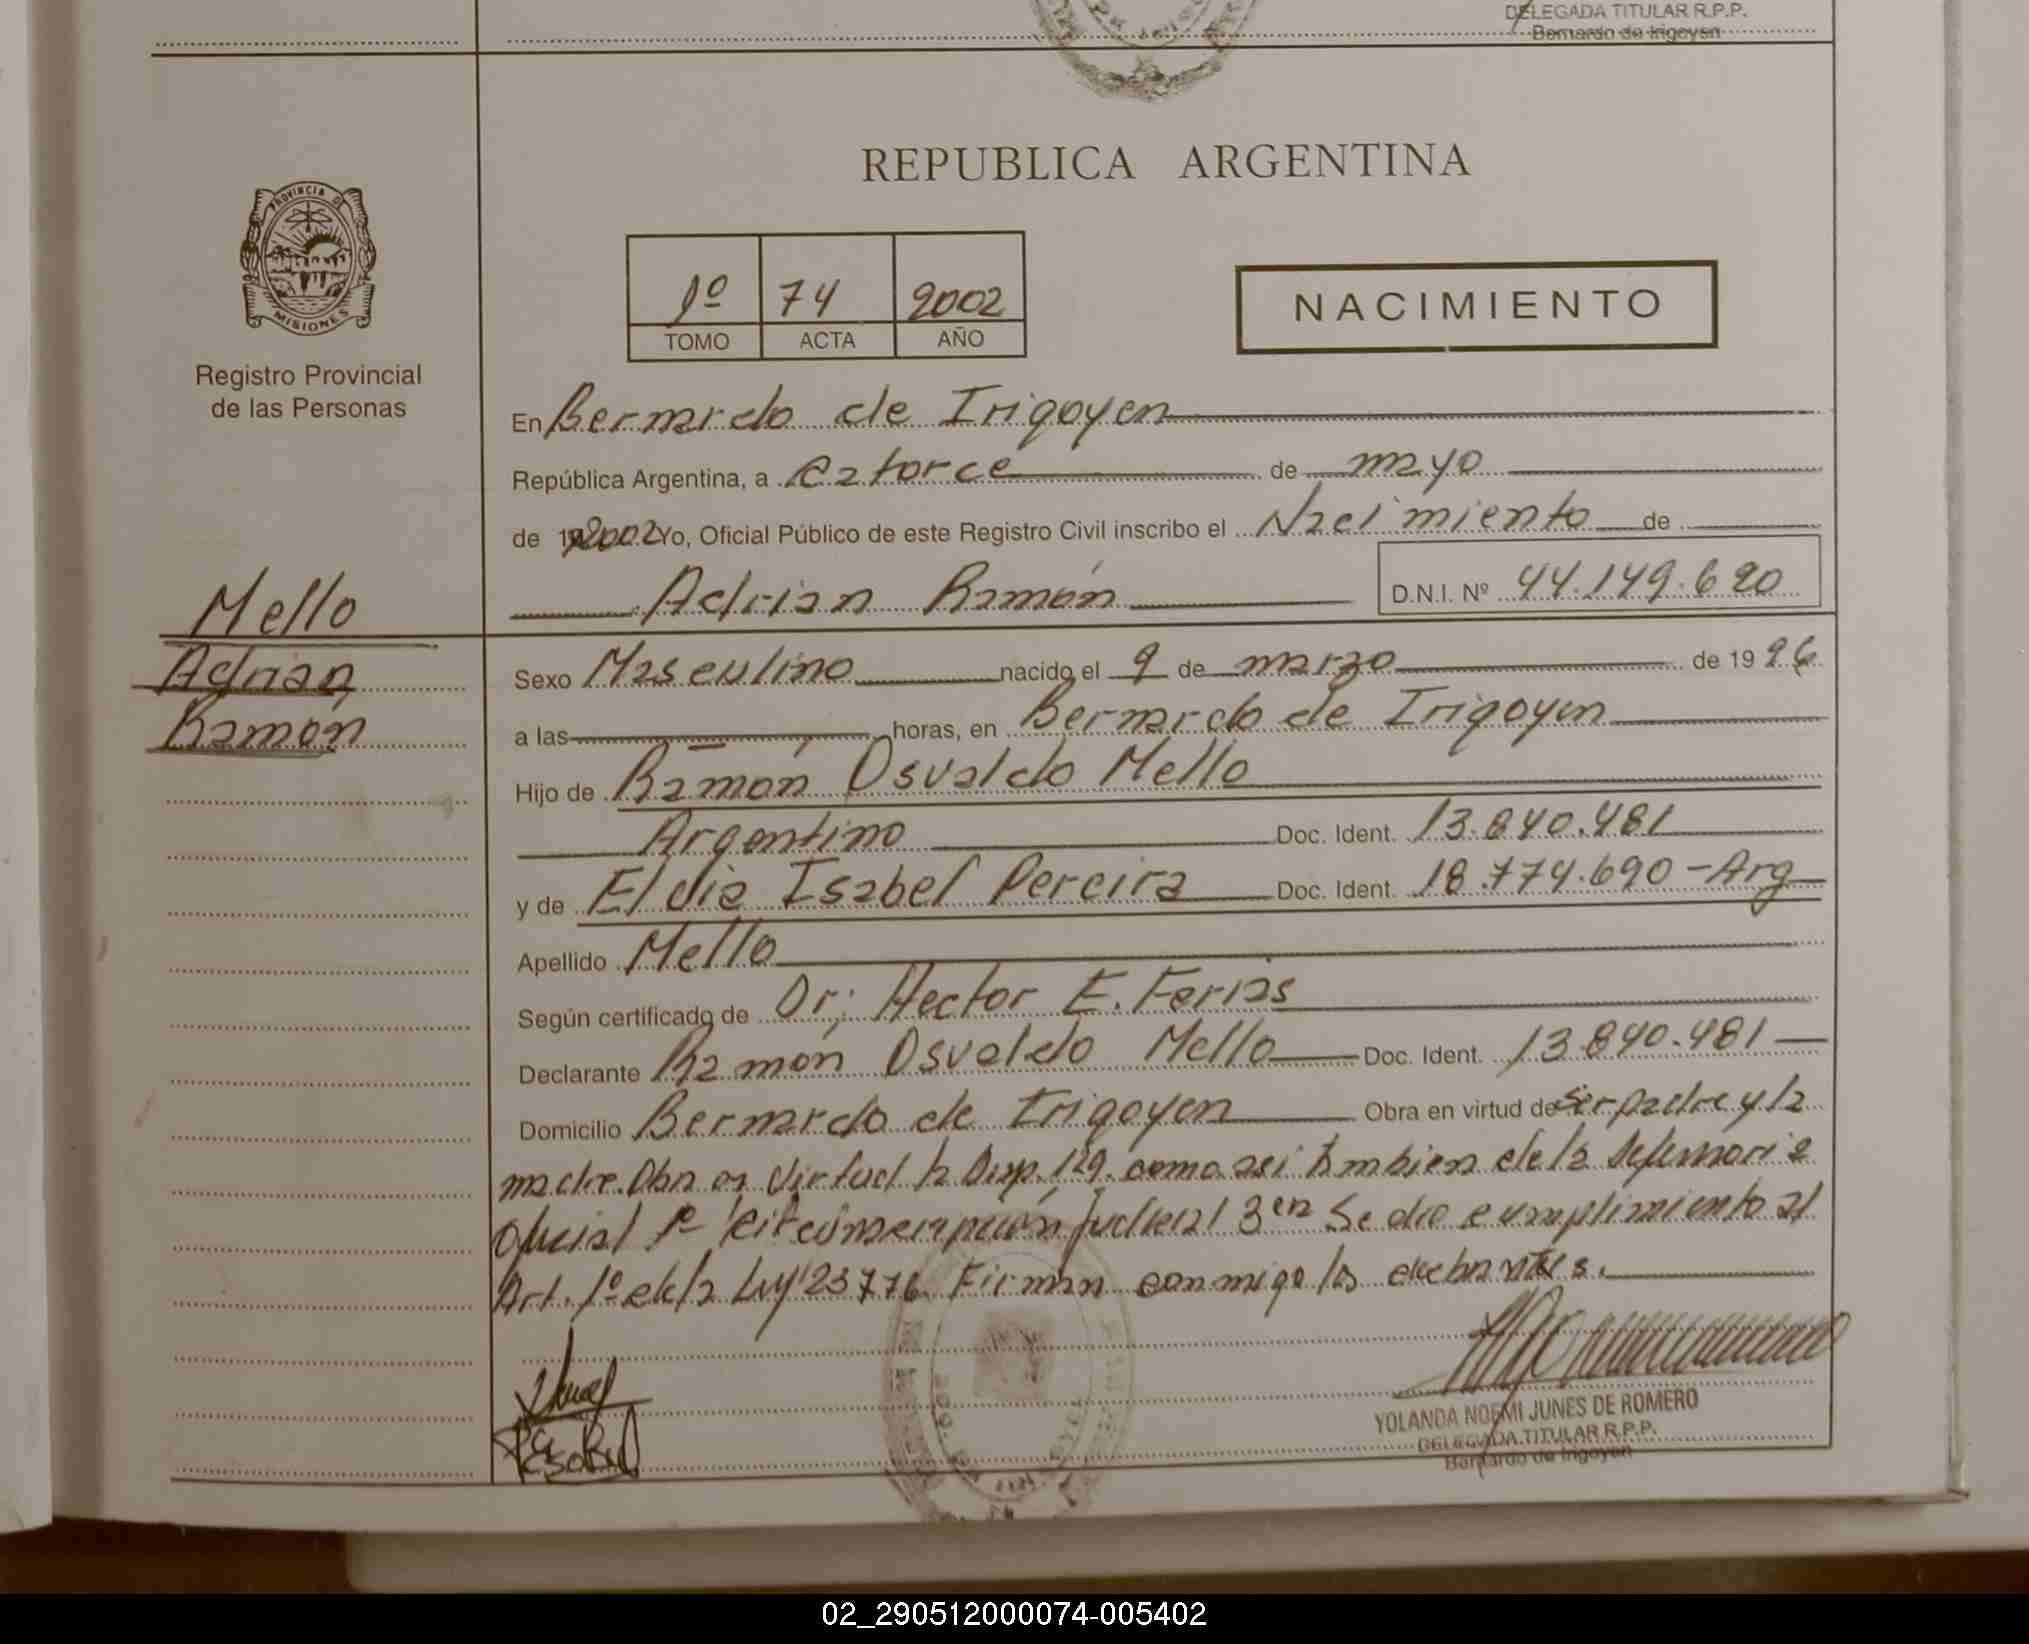 DELEGADA TITULAR R.P.P.
Bernardo de Irigoyen
REPUBLICA ARGENTINA
PROVINCIA DE
MISIONES
Registro Provincial
de las Personas
1º 74 2002
TOMO ACTA AÑO
NACIMIENTO
En Bernardo de Irigoyen
República Argentina, a catorce de mayo
de 19 2002 Yo, Oficial Público de este Registro Civil inscribo el Nacimiento de
Adrián Ramón D.N.I. Nº 44.149.620
Mello
Adrian
Ramón
Sexo Masculino nacido el 9 de marzo de 19 96
a las horas, en Bernardo de Irigoyen
Hijo de Ramón Osvaldo Mello
Argentino Doc. Ident. 13.840.481
y de Elvia Isabel Pereira Doc. Ident. 18.774.690 - Arg
Apellido Mello
Según certificado de Dr; Hector E. Ferias
Declarante Ramón Osvaldo Mello Doc. Ident. 13.840.481
Domicilio Bernardo de Irigoyen Obra en virtud de ser padre y la
madre. Obra en virtud la Disp. 129. como asi tambien de la Defensoria
Oficial 1º Judicial 3era Se dio cumplimiento al
Art. 1º de la Ley 23776. Firman conmigo los
YOLANDA NOEMI JUNES DE ROMERO
DELEGADA TITULAR R.P.P.
Bernardo de Irigoyen
02_290512000074-005402